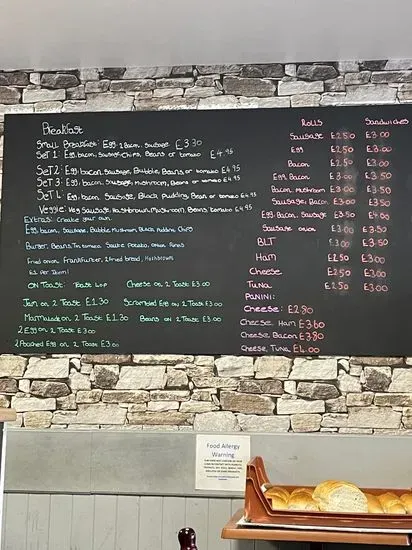 Breakfast
Small Breakfast: Egg, Bacon, Sausage £3.30
Set 1: Egg, bacon, Sausage, Chips, Beans or tomato £4.95
Set 2: Egg, bacon, Sausage, Bubble, Beans or tomato £4.95
Set 3: Egg, bacon, Sausage, Mushroom, Beans or tomato £4.95
Set 4: Egg, bacon, Sausage, Black Pudding, Bean or tomato £4.95
Veggie: Veg Sausage, Hashbrown, Mushroom, Beans, Tomato £4.95
Extras: Create your own
Egg, bacon, Sausage, Bubble, Mushroom, Black Pudding, Chips
Burger, Beans, Tin tomato, Saute Potato, Onion Rings
Fried onion, Frankfurter, 2 fried bread, Hashbrowns
Per Item!
ON Toast: Toast
Cheese on 2 Toast £3.00
Jam on 2 Toast £1.30
Scrambled Egg on 2 Toast £3.00
Marmalade on 2 Toast £1.30
Beans on 2 Toast £3.00
2 Egg on 2 Toast £3.00
2 Poached Egg on 2 Toast £3.00
Rolls Sandwiches
Sausage £2.50 £3.00
Egg £2.50 £3.00
Bacon £2.50 £3.00
Egg, Bacon £3.00 £3.50
Bacon, Mushroom £3.00 £3.50
Sausage, Bacon £3.00 £3.50
Egg, Bacon, Sausage £3.50 £4.00
Sausage onion £3.00 £3.50
BLT £3.00 £3.50
Ham £2.50 £3.00
Cheese £2.50 £3.00
Tuna £2.50 £3.00
PANINI:
Cheese: £2.80
Cheese, Ham £3.60
Cheese, Bacon £3.80
Cheese, Tuna £4.00
Food Allergy
Warning